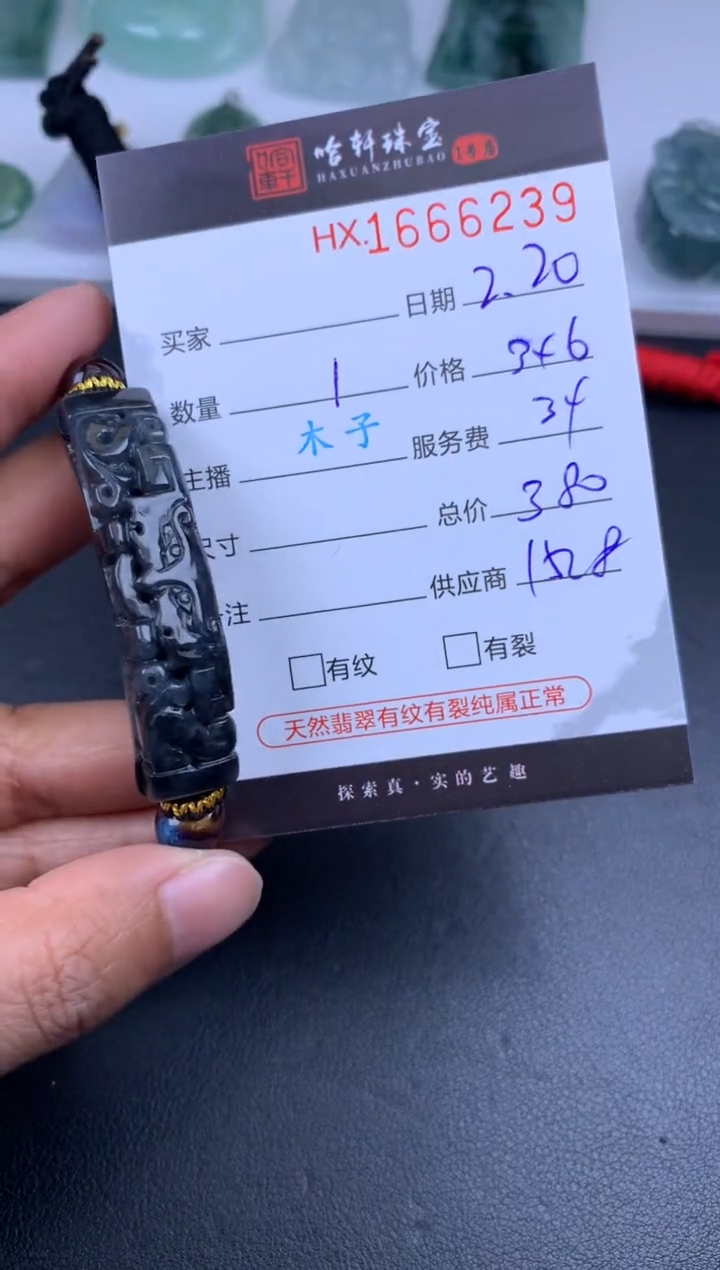 哈轩珠宝 1号店
HAXUANZHUBAO
HX.1666239
买家 日期 2.20
数量 1 价格 346
主播 木子 服务费 34
尺寸 总价 380
注 供应商 1528
有纹 有裂
天然翡翠有纹有裂纯属正常
探索真·实的艺趣